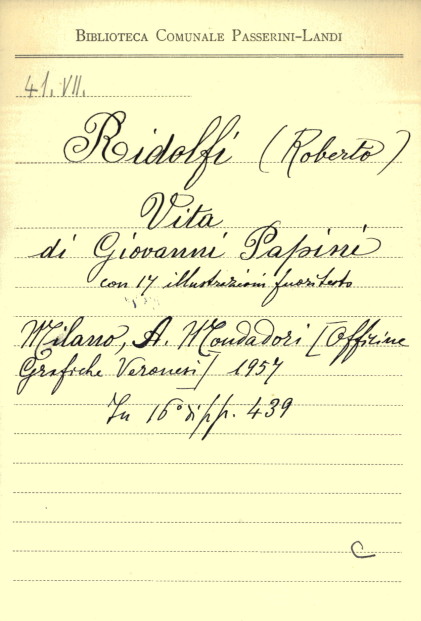 BIBLIOTECA COMUNALE PASSERINI-LANDI
41. VII.
Ridolfi (Roberto)
Vita
di Giovanni Papini
con 17 illustrazioni fuoritesto
Milano, A. Mondadori [Officine
Grafiche Veronesi] 1957
In 16° di pp. 439
C